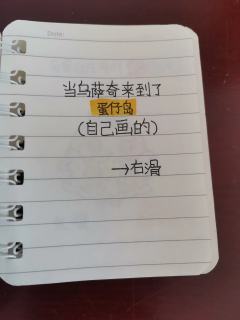 Date:
当乌萨奇来到了
蛋仔岛
(自己画的)
→右滑